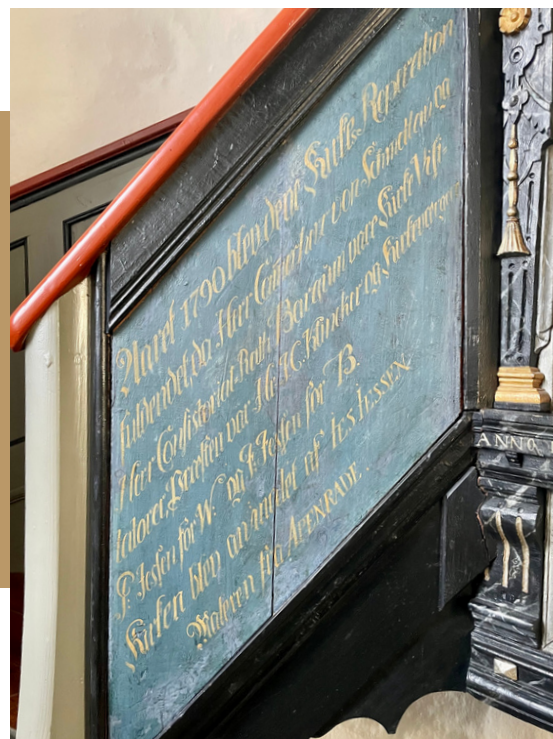 Aaret 1790 blev dene Kirkes Reparation
fuldendet, da Herr Camerherr von Schmettow og
Herr Consistorial-Raad Bargum vare Kirke Visi-
tatorer Præsten var Hr. I. C. Klincker og Kirkeværgere
P. Iessen för W. og I. Iessen för B.
Kirken blev anmalet af IES IESSEN.
Maleren fra APENRADE.
ANNO